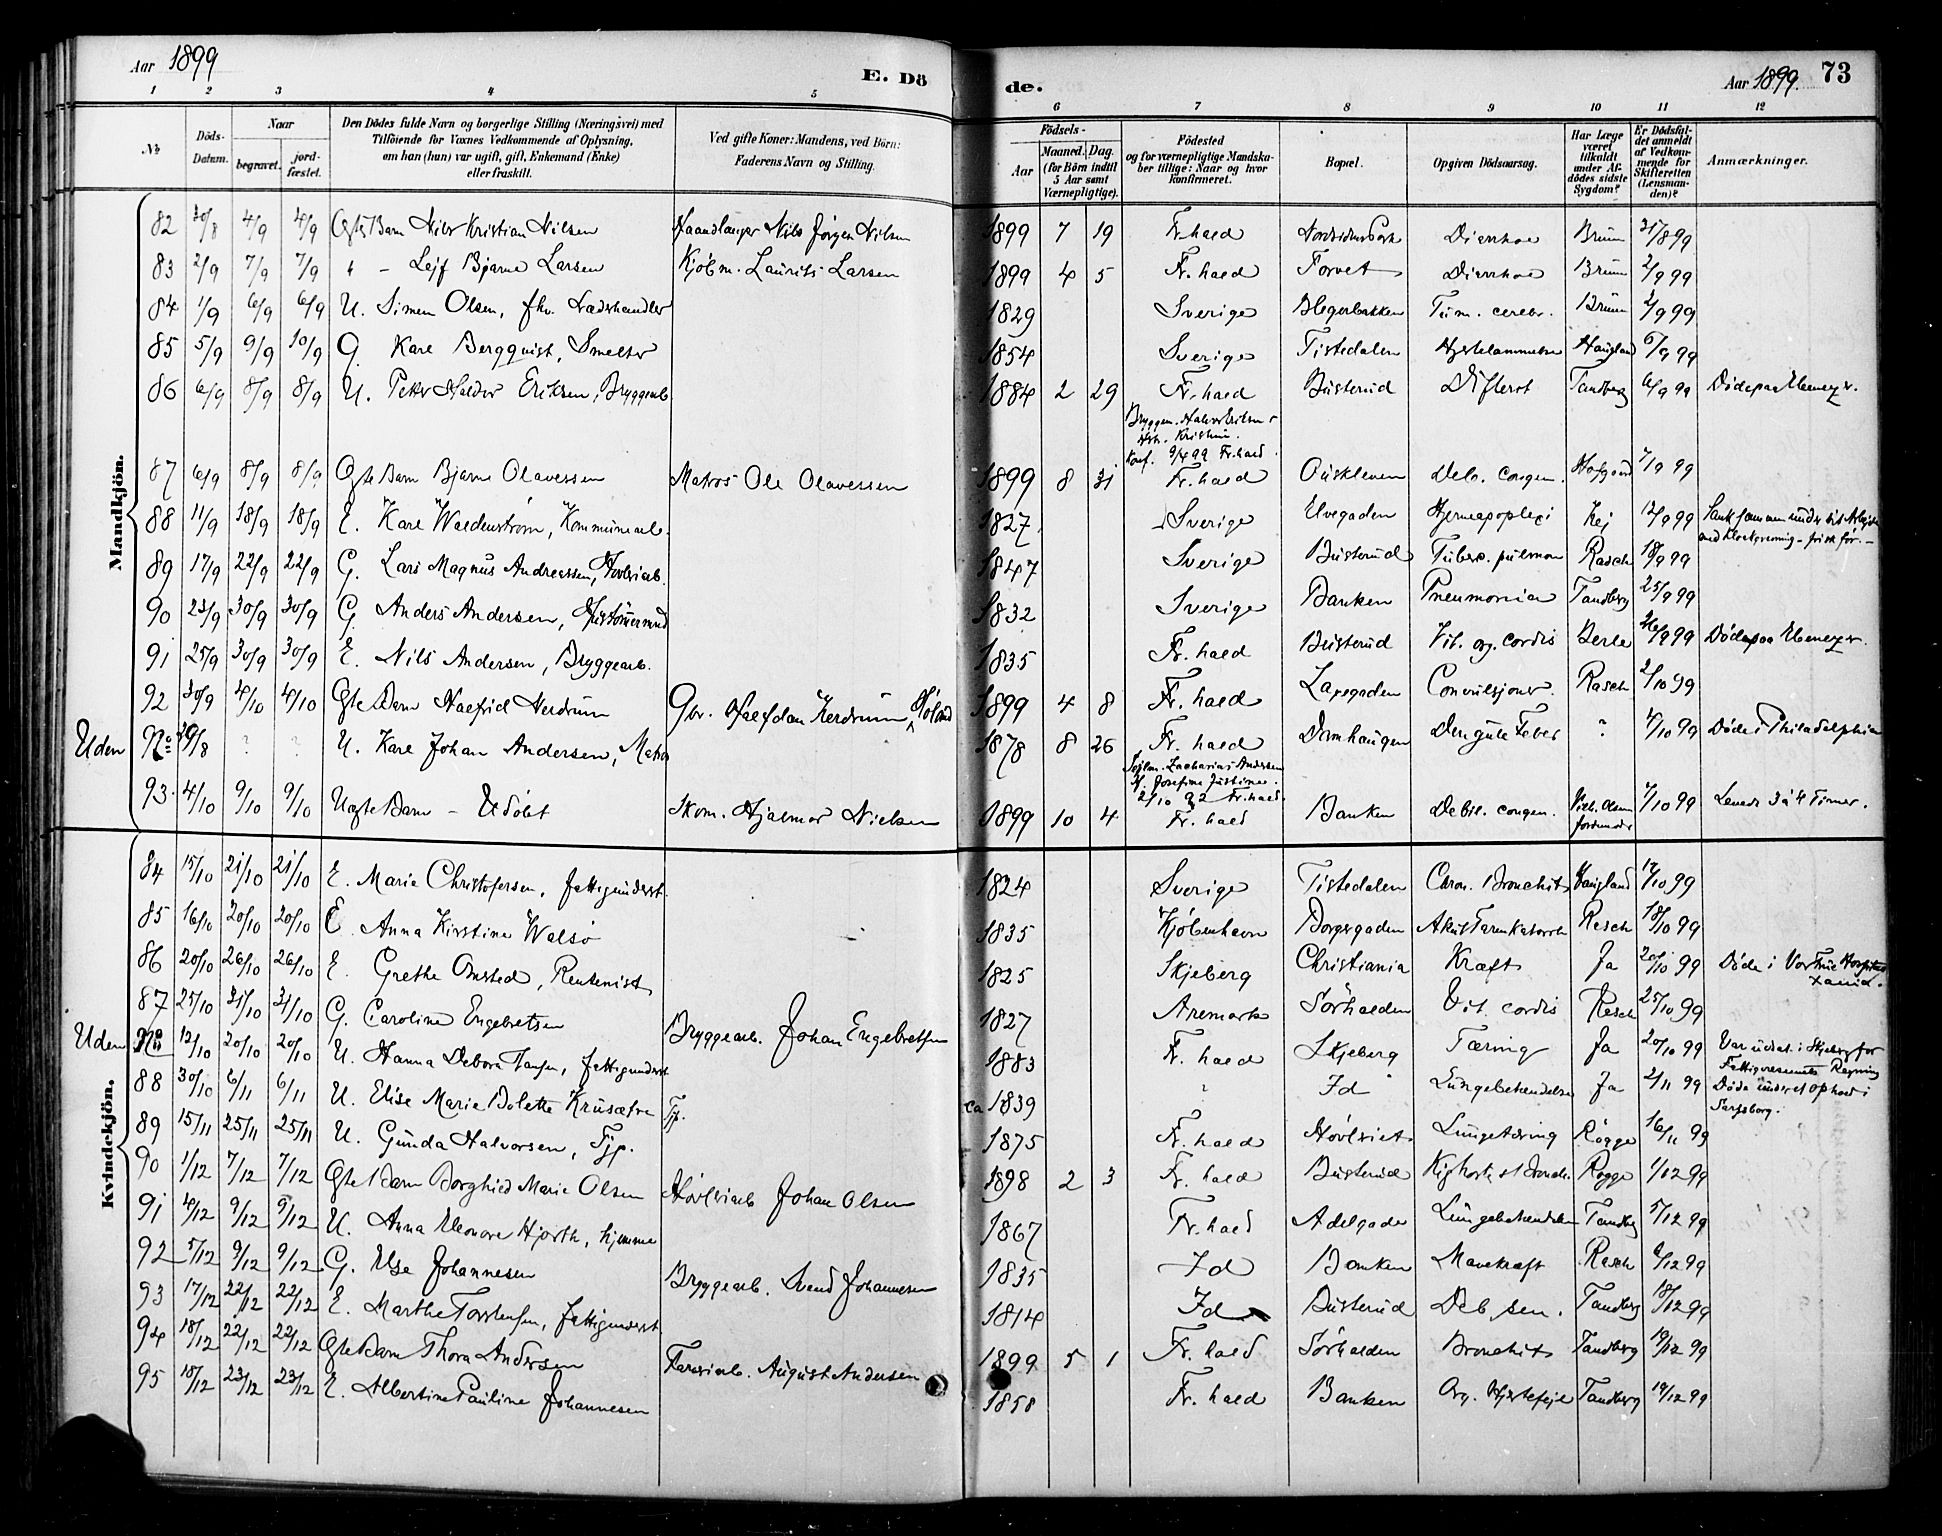 Aar 1899
E. Dö
de.
Aar 1899.
73
1 2 3 4 5 6 7 8 9 10 11 12
No
Döds-Datum.
Naar
begravet.
jordfæstet.
Den Dödes fulde Navn og borgerlige Stilling (Næringsvei) med
Tilföiende for Voxnes Vedkommende af Oplysning,
om han (hun) var ugift, gift, Enkemand (Enke)
eller fraskilt.
Ved gifte Koner: Mandens, ved Börn:
Faderens Navn og Stilling.
Födsels-
Aar
Maaned. Dag.
(for Börn indtil
5 Aar samt
Værnepligtige).
Födested
og for værnepligtige Mandska-
ber tillige: Naar og hvor
konfirmeret.
Bopæl.
Opgiven Dödsaarsag.
Har Læge
været
tilkaldt
under Af-
dödes sidste
Sygdom?
Er Dödsfal-
det anmeldt
af Vedkom-
mende for
Skifteretten
(Lensman-
den)?
Anmærkninger.
Mandkjön.
82 30/8 4/9 4/9 Ægte Barn Nils Kristian Nilsen Haandlanger Nils Jørgen Nilsen 1899 7 19 Fr.hald Diarrhoe Bruun 31/8 99
83 2/9 7/9 7/9 " - Lejf Bjarne Larsen Kjøbm. Laurits Larsen 1899 4 5 Fr.hald Torvet Diarrhoe Bruun 2/9 99
84 1/9 6/9 6/9 U. Simen Olsen, fhv. Læderhandler 1829 Sverige Tum. cerebr. Bruun 2/9 99
85 5/9 9/9 10/9 G. Karl Bergquist, Smelter 1854 Sverige Tistedalen Hjertelammelse Haugland 6/9 99
86 6/9 8/9 8/9 U. Peter Haldor Eriksen, Bryggearb. 1884 2 29 Fr.hald Busterud Difterit Tandberg 6/9 99 Døde paa Ebenezer.
Bryggea. Halvor Eriksen &
Hst. Kristine.
Konf. 9/4 99 Fr.hald.
87 6/9 8/9 8/9 Ægte Barn Bjarne Olavessen Matros Ole Olavessen 1899 8 31 Fr.hald Ouskleven Deb. congen. Hofgaard 7/9 99
88 11/9 18/9 18/9 E. Karl Waldenstrøm, Kommunearb. 1827 Sverige Elvegaden Hjerneapoplexi Nej 12/9 99 Sank sammen under sit Arbejde
89 17/9 22/9 22/9 G. Lars Magnus Andreassen, Høvleriarb. 1847 Sverige Busterud Tuberc. pulmon Rasch 18/9 99
90 23/9 30/9 30/9 G. Anders Andersen, Hustømmermand 1832 Sverige Banken Pneumonia Tandberg 25/9 99
91 25/9 30/9 30/9 E. Nils Andersen, Bryggearb. 1835 Fr.hald Busterud Vit. org. cordis Berle 26/9 99 Døde paa Ebenezer.
92 30/9 4/10 4/10 Ægte Barn Halfrid Herdrum Gbr. Halfdan Herdrum, Høland 1899 4 8 Fr.hald Lapegaden Convulsjoner. Rasch 2/10 99
Uden No 29/8 ? ? U. Karl Johan Andersen, Matros 1878 8 26 Fr.hald Damhaugen Den gule Feber ? 4/10 99 Døde i Philadelphia
Sejlm. Zacharias Andersen
H. Josefine Justine.
2/10 92 Fr.hald.
93. 4/10 9/10 9/10 Uægte Barn - Udøbt Skom. Hjalmar Nielsen 1899 10 4 Fr.hald Banken Debil. congen. Vilh. Olsen Jordmoder 7/10 99 Levede 3 à 4 Timer.
Kvindekjön.
84 15/10 21/10 21/10 E. Marie Christofersen, fattigunderst. 1824 Sverige Tistedalen Chron. Bronchit Haugland 17/10 99
85 16/10 20/10 20/10 E. Anna Kirstine Walsø 1835 Kjøbenhavn Borgergaden Akut Tarmkatarrh Rasch 18/10 99
86 20/10 26/10 26/10 E. Grethe Omsted, Rentenist 1825 Skjeberg Christiania Kræft Ja 20/10 99 Døde i Vor Frue Hospital
Xania.
87 25/10 31/10 31/10 G. Caroline Engebretsen Bryggearb. Johan Engebretsen 1827 Aremark Sørhalden Vit. cordis Rasch 25/10 99
Uden No 12/10 20/10 20/10 U. Hanna Debora Hansen, fattigunderst. 1883 Fr.hald Skjeberg Tæring Ja 20/10 99 Var udsat i Skjeberg for
Fattigvæsenets Regning
88 30/10 6/11 6/11 U. Elise Marie Bolette Krusætre Tj. ca 1839 ? Id Lungebetændelse Ja 2/11 99 Døde under et Ophold i
Sarpsborg.
89 15/11 25/11 25/11 U. Gunda Halvorsen, Tjp. 1875 Fr.hald Høvleriet Lungetæring Rogge 16/11 99
90 1/12 7/12 7/12 Ægte Barn Borghild Marie Olsen Høvleriarb. Johan Olsen 1898 2 3 Fr.hald Busterud Kighoste & Bronchit. Rogge 1/12 99
91 4/12 9/12 9/12 U. Anna Eleonore Hjorth, hjemme 1867 Fr.hald Adelgade Lungebetændelse Tandberg 5/12 99
92 5/12 9/12 9/12 G. Else Johannesen Bryggearb. Svend Johannesen 1835 Id Banken Mavekræft Rasch 6/12 99
93 17/12 22/12 22/12 E. Marthe Torstensen, fattigunderst. 1814 Id Busterud Deb. sen. Tandberg 18/12 99
94 18/12 22/12 22/12 Ægte Barn Thora Andersen Farveriarb. August Andersen 1899 5 1 Fr.hald Sørhalden Bronchit Tandberg 19/12 99
95 18/12 23/12 23/12 E. Albertine Pauline Johannesen 1858 Fr.hald Banken Org. Hjertefejl Tandberg 19/12 99